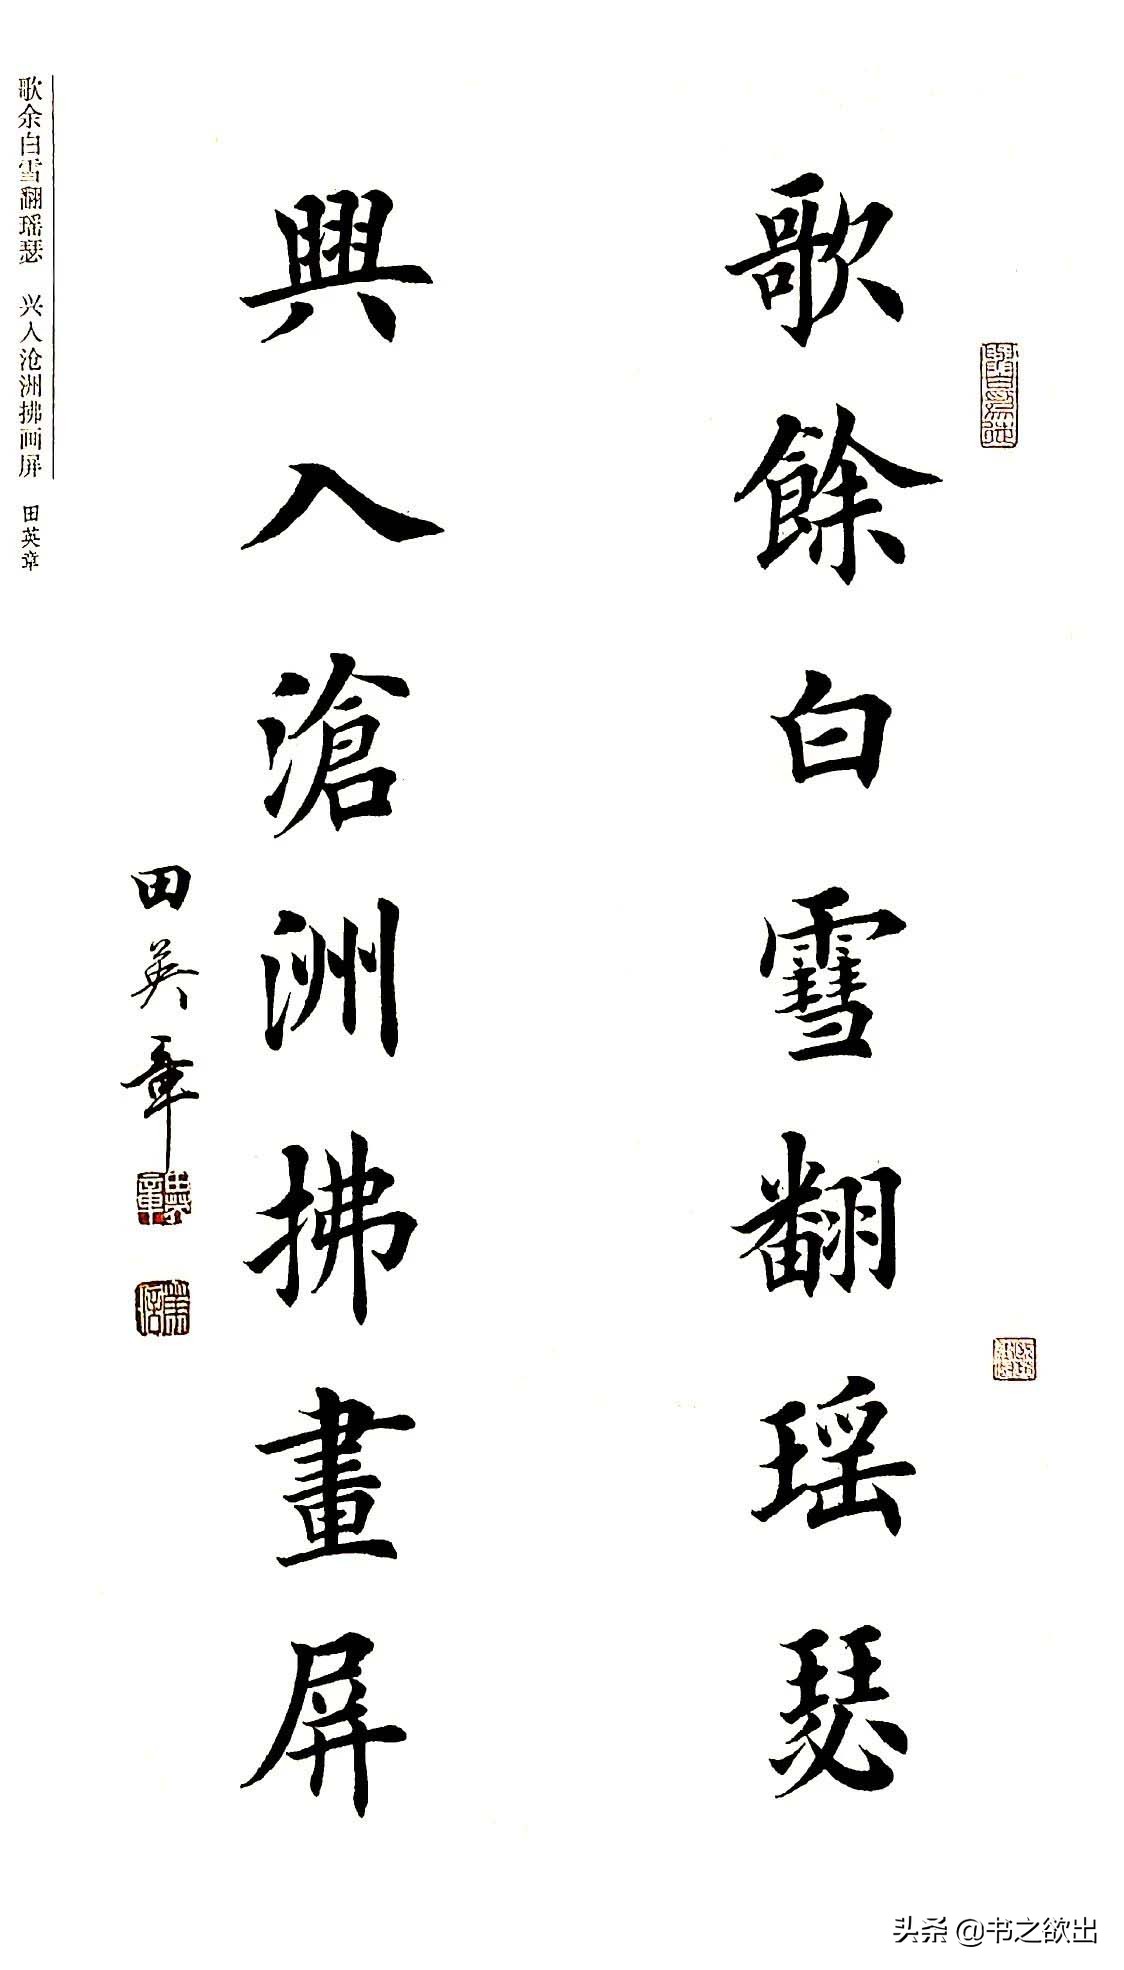 歌餘白雪翻瑶瑟
興入滄洲拂畫屏
田英章
歌余白雪翻瑶瑟 兴入沧洲拂画屏 田英章
头条 @书之欲出